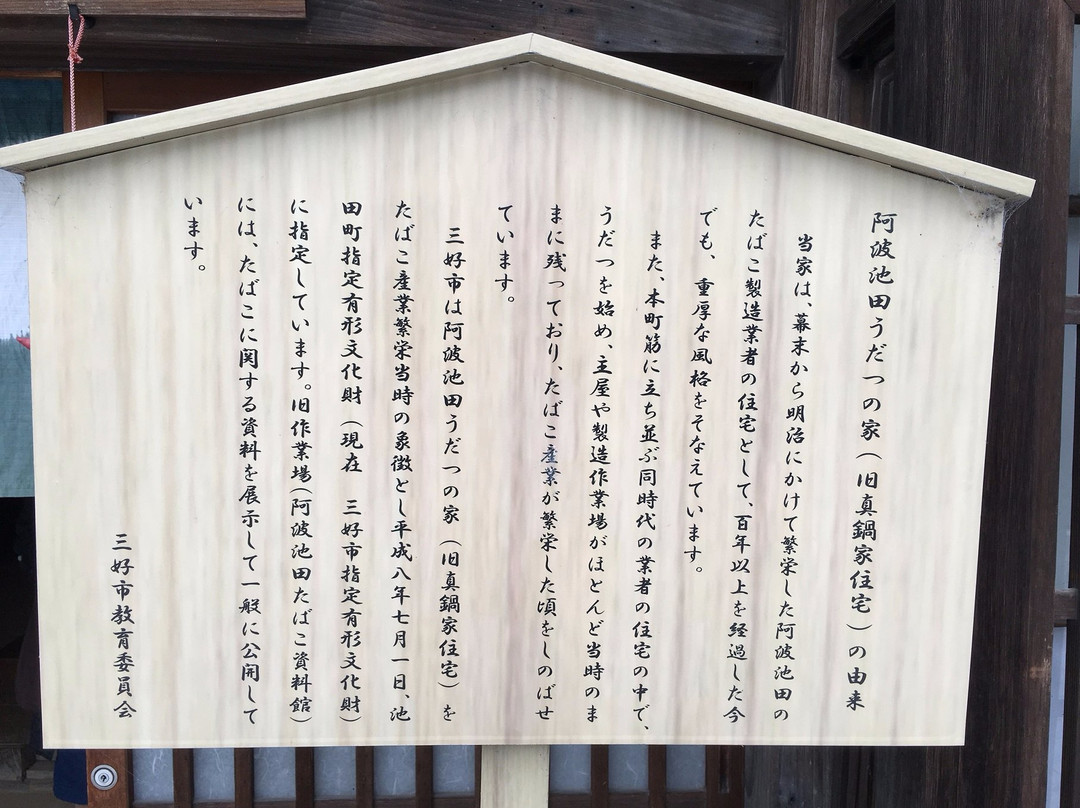 阿波池田うだつの家(旧真鍋家住宅)の由来
当家は、幕末から明治にかけて繁栄した阿波池田の
たばこ製造業者の住宅として、百年以上を経過した今
でも、重厚な風格をそなえています。
また、本町筋に立ち並ぶ同時代の業者の住宅の中で、
うだつを始め、主屋や製造作業場がほとんど当時のま
まに残っており、たばこ産業が繁栄した頃をしのばせ
ています。
三好市は阿波池田うだつの家(旧真鍋家住宅)を
たばこ産業繁栄当時の象徴とし平成八年七月一日、池
田町指定有形文化財(現在 三好市指定有形文化財)
に指定しています。旧作業場(阿波池田たばこ資料館)
には、たばこに関する資料を展示して一般に公開して
います。
三好市教育委員会